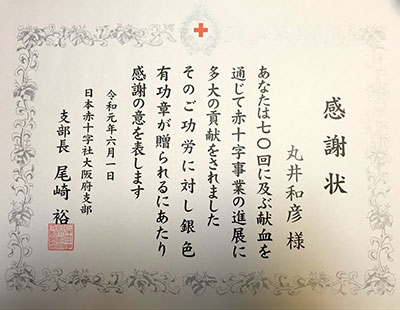 感謝状
丸井和彦 様
あなたは七〇回に及ぶ献血を
通じて赤十字事業の進展に
多大の貢献をされました
そのご功労に対し銀色
有功章が贈られるにあたり
感謝の意を表します
令和元年六月一日
日本赤十字社大阪府支部
支部長 尾崎 裕